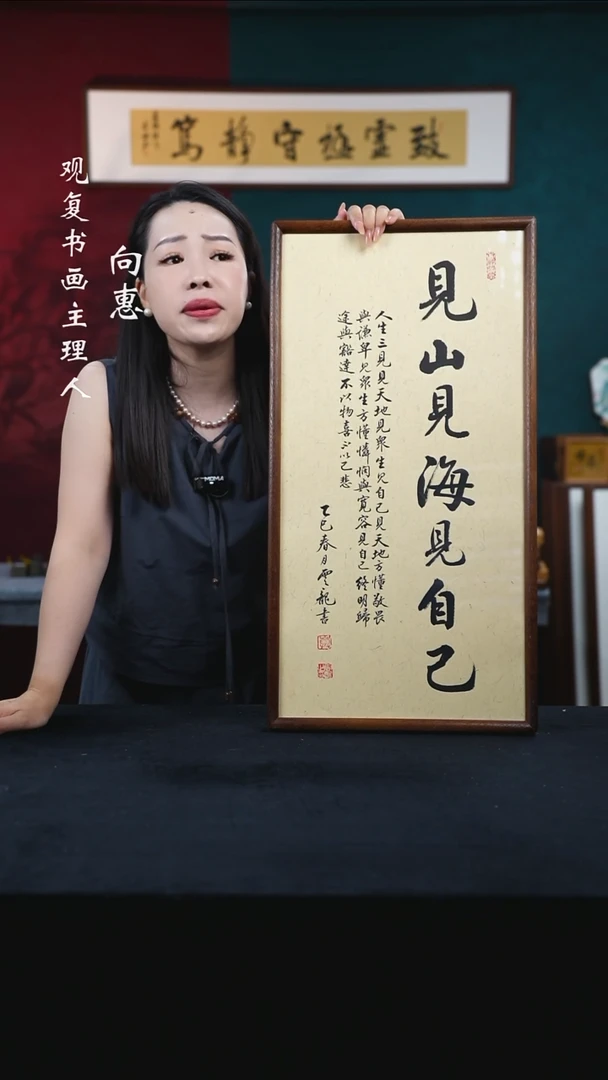 致虛極守靜篤
观复书画主理人
向惠
見山見海見自己
人生三見見天地見衆生見自己見天地方懂敬畏
與謙卑見衆生方懂憐憫與寬容見自己終明歸
途與豁達不以物喜不以己悲
乙巳春月雲龍書